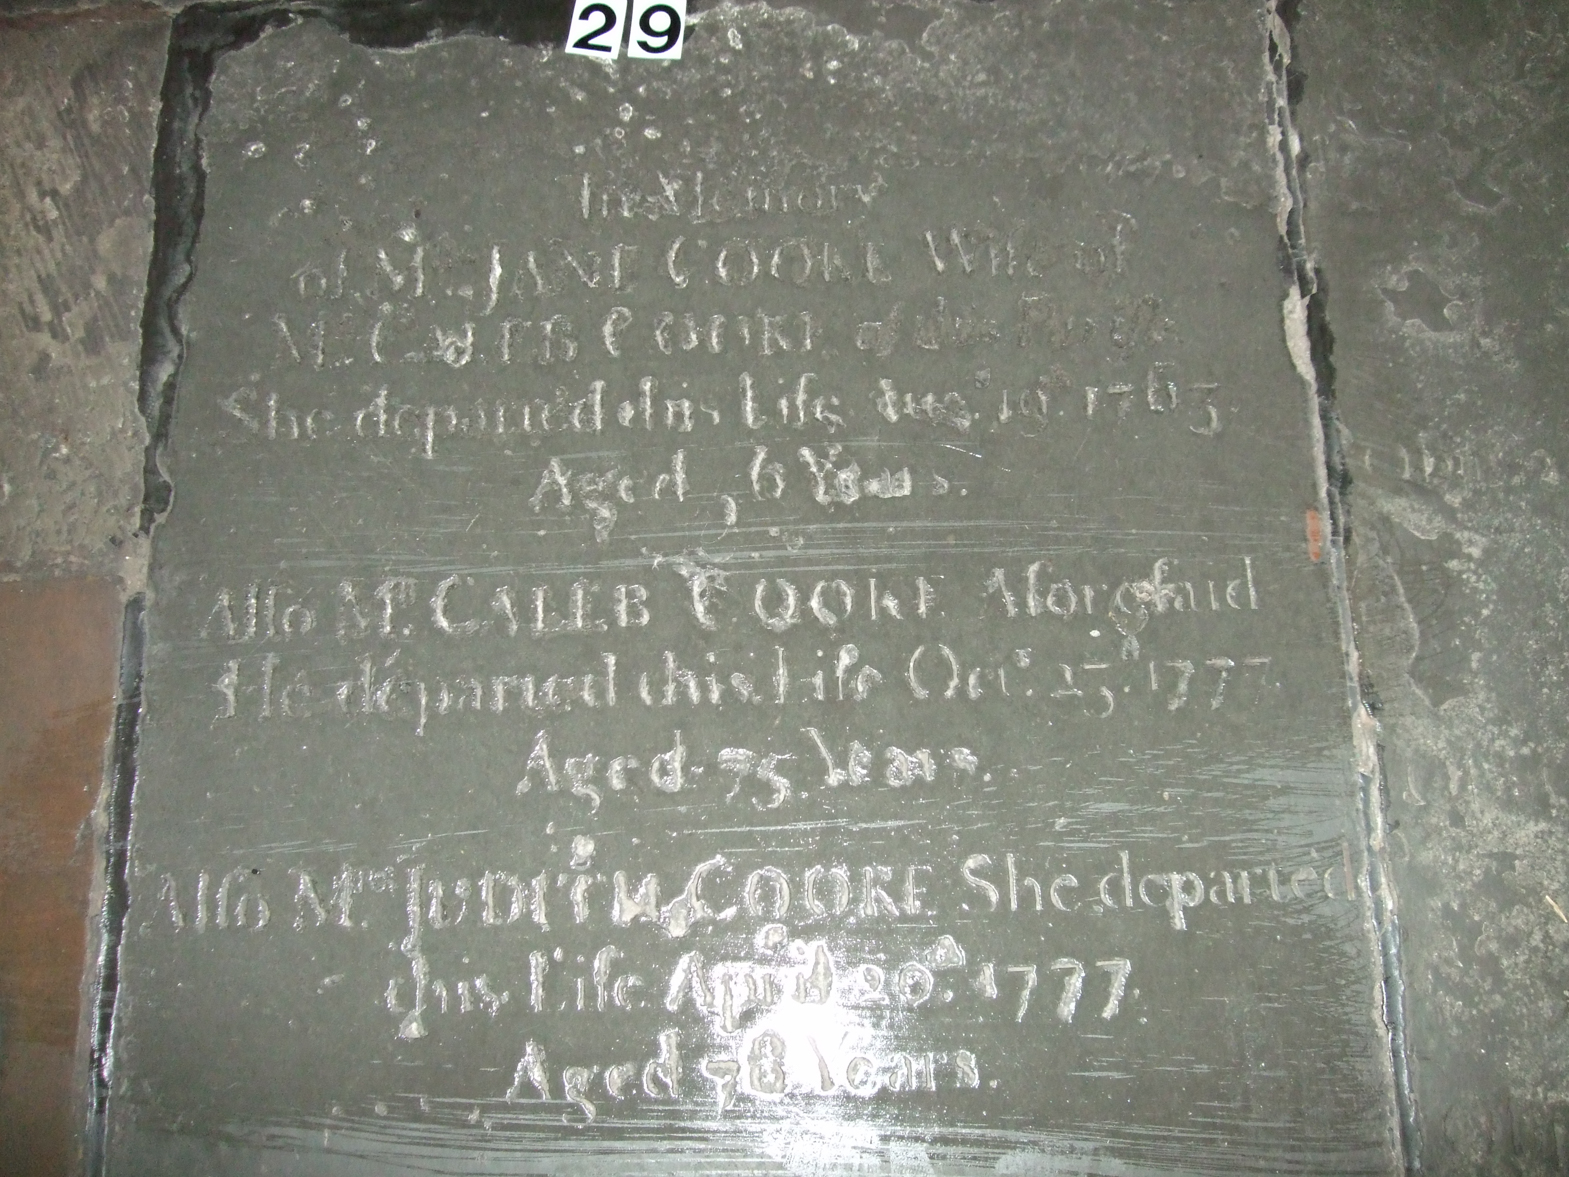 29
In Memory
of Mrs. JANE COOKE Wife of
Mr. CALEB COOKE of this Parish
She departed this Life Aug. 19th 1763
Aged 56 Years.
Also Mr. CALEB COOKE Aforesaid
He departed this Life Oct. 25. 1777
Aged 75 Years.
Also Mrs JUDITH COOKE She departed
this Life April 20th. 1777.
Aged 78 Years.